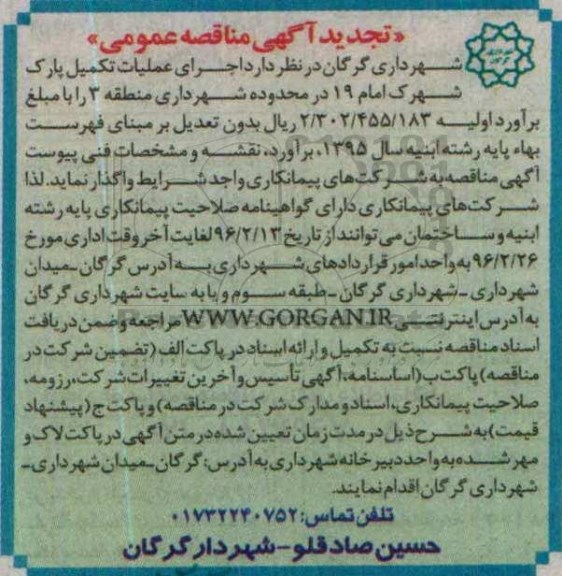 «تجدید آگهی مناقصه عمومی»
شهرداری گرگان در نظر دارد اجرای عملیات تکمیل پارک
شهرک امام ۱۹ در محدوده شهرداری منطقه ۳ را با مبلغ
برآورد اولیه ۲/۳۰۲/۴۵۵/۱۸۳ ریال بدون تعدیل بر مبنای فهرست
بهاء پایه رشته ابنیه سال ۱۳۹۵، برآورد، نقشه و مشخصات فنی پیوست
آگهی مناقصه به شرکت‌های پیمانکاری واجد شرایط واگذار نماید. لذا
شرکت‌های پیمانکاری دارای گواهینامه صلاحیت پیمانکاری پایه رشته
ابنیه و ساختمان می‌توانند از تاریخ ۹۶/۲/۱۳ لغایت آخر وقت اداری مورخ
۹۶/۲/۲۶ به واحد امور قراردادهای شهرداری به آدرس گرگان ـ میدان
شهرداری ـ شهرداری گرگان ـ طبقه سوم و یا به سایت شهرداری گرگان
به آدرس اینترنتی WWW.GORGAN.IR مراجعه و ضمن دریافت
اسناد مناقصه نسبت به تکمیل و ارائه اسناد در پاکت الف (تضمین شرکت در
مناقصه) پاکت ب (اساسنامه، آگهی تأسیس و آخرین تغییرات شرکت، رزومه،
صلاحیت پیمانکاری، اسناد و مدارک شرکت در مناقصه) و پاکت ج (پیشنهاد
قیمت) به شرح ذیل در مدت زمان تعیین شده در متن آگهی در پاکت لاک و
مهر شده به واحد دبیرخانه شهرداری به آدرس: گرگان ـ میدان شهرداری ـ
شهرداری گرگان اقدام نمایند.
تلفن تماس: ۰۱۷۳۲۲۴۰۷۵۲
حسین صادقلو - شهردار گرگان